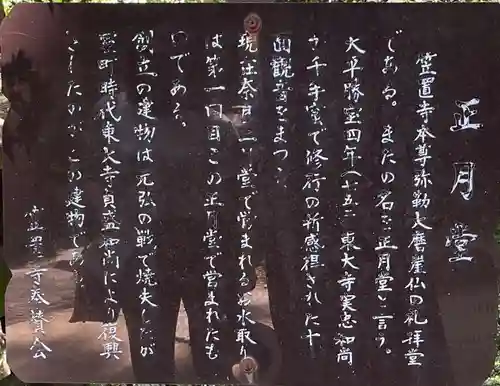 正月堂
笠置寺本尊弥勒大磨崖仏の礼拝堂
である。またの名を正月堂と言う。
天平勝宝四年(七五二)東大寺実忠和尚
が千手窟で修行の折感得された十
一面観音をまつる
現在奈良二月堂で営まれるお水取り
は第一回目この正月堂で営まれたも
のである。
創立の建物は元弘の戦で焼失したが
室町時代東大寺貞盛和尚により復興
さしたのがこの建物である
笠置寺奉賛会